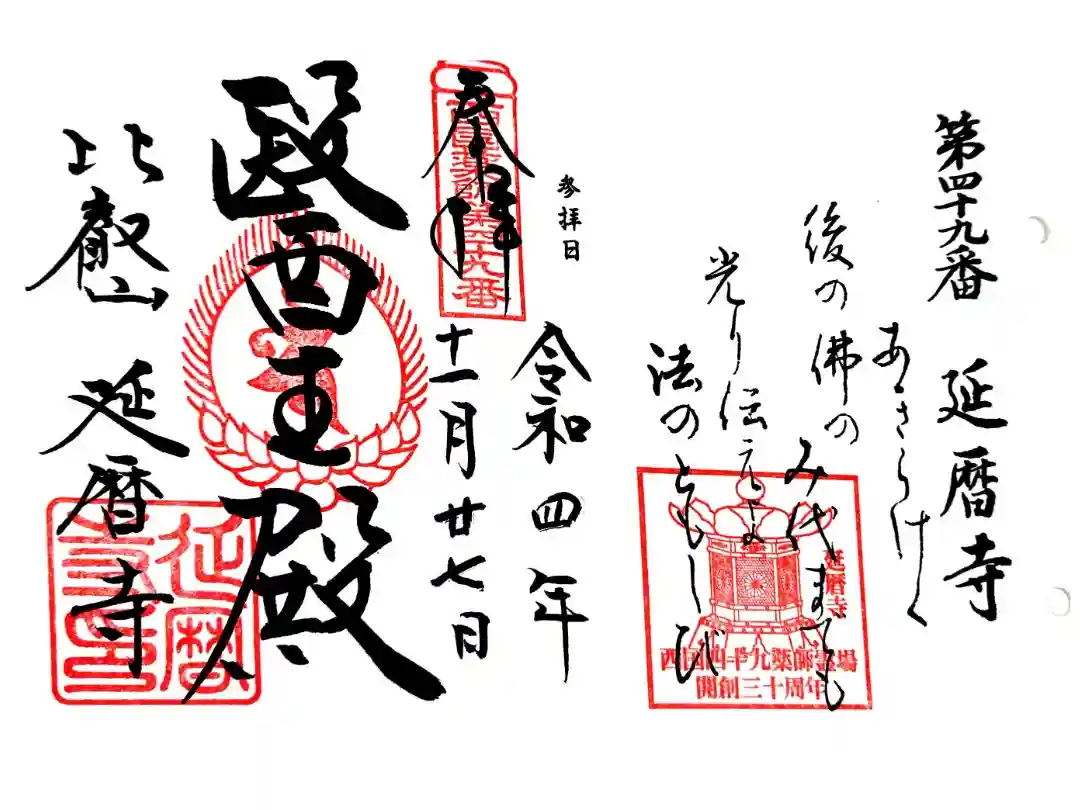 第四十九番 延暦寺
あきらけく
後の佛の
み代までも
光り伝えよ
法のともしび
延暦寺
西国四十九薬師霊場
開創三十周年
参拝日
令和四年
十一月廿七日
奉拝
西国薬師第四十九番
醫王殿
比叡山 延暦寺
延暦
寺印